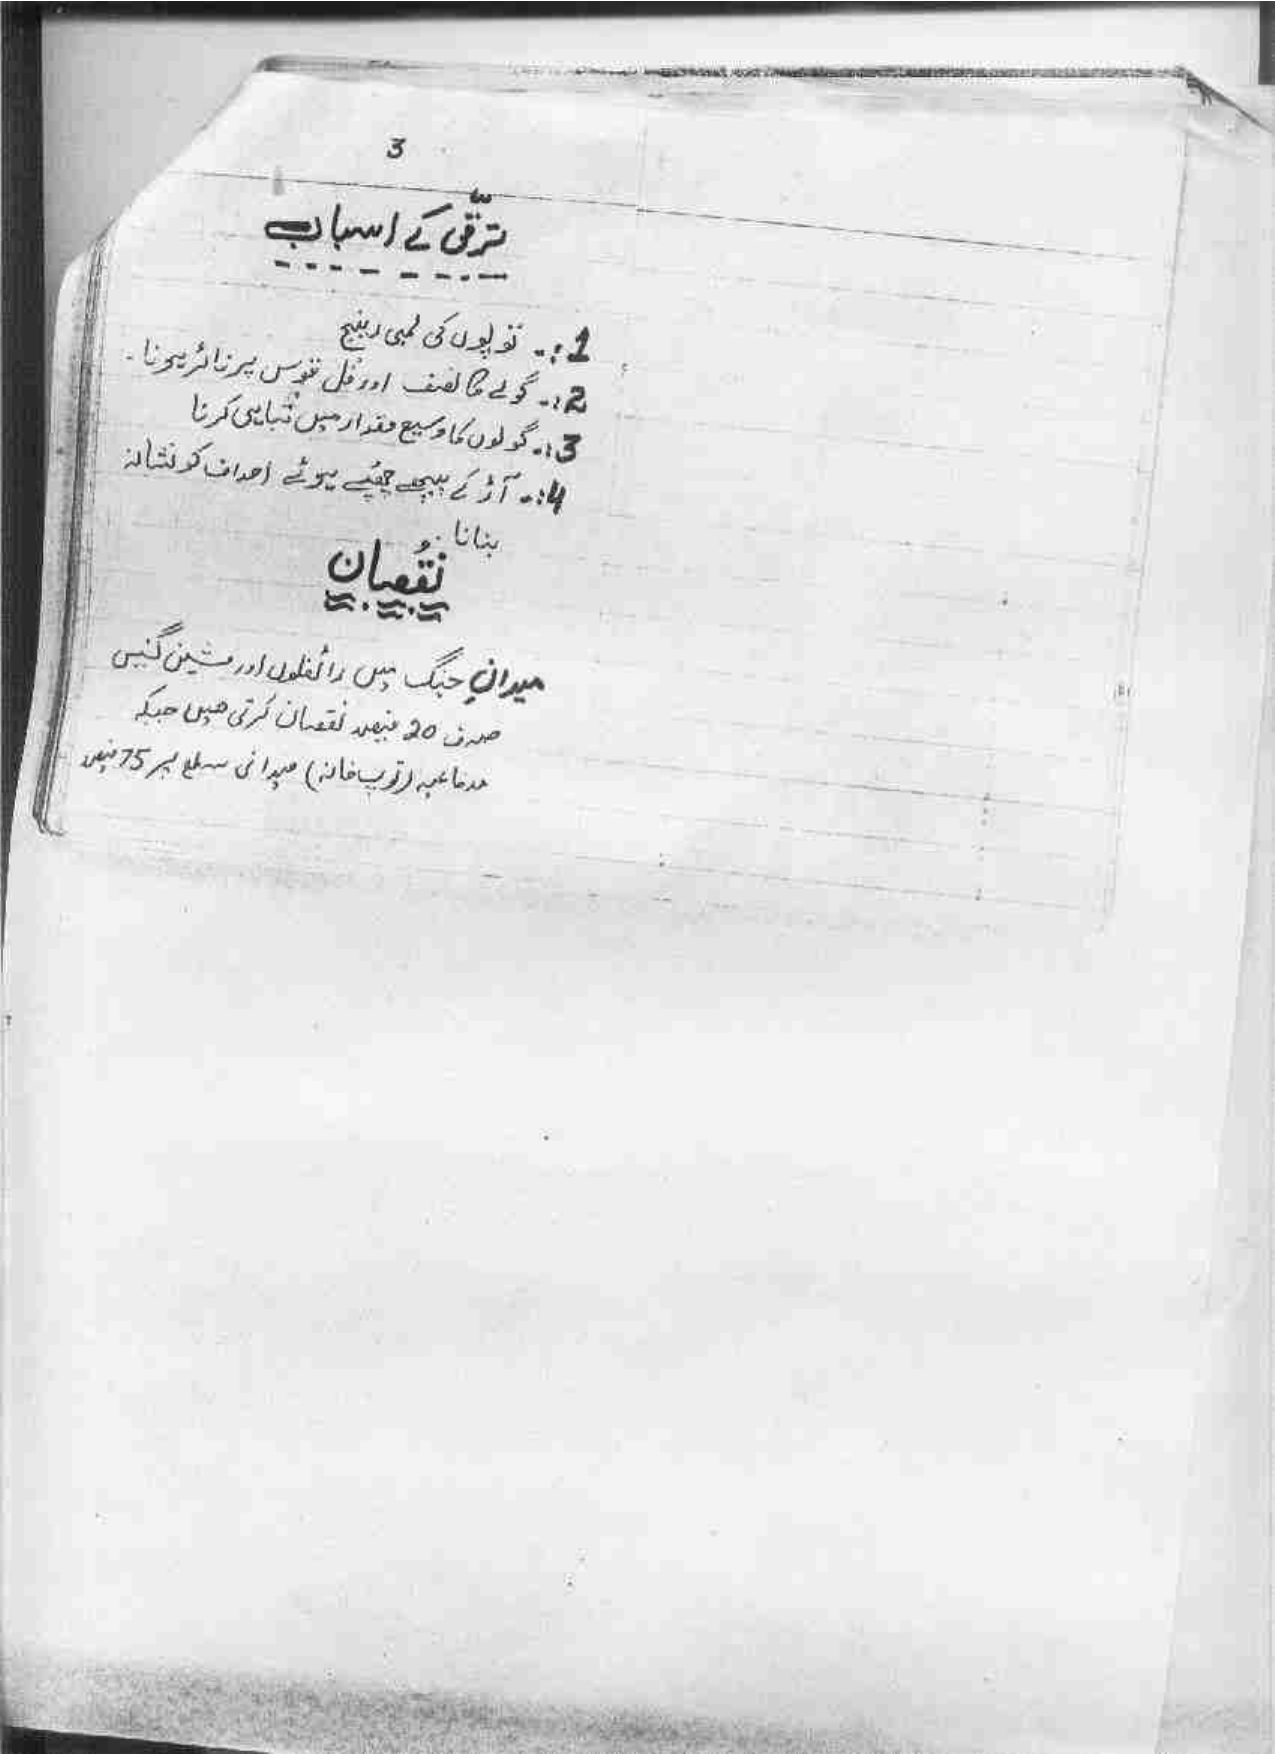 3
ترقّی کے اسباب
1:- توپوں کی لمبی رینج
2:- گولے کا نصف اور فُل قوس پر فائر ہونا۔
3:- گولوں کا وسیع مقدار میں تباہی کرنا
4:- آڑ کے پیچھے چھُپے ہوئے اہداف کو نشانہ
بنانا
نقُصان
میدانِ جنگ میں رائفلوں اور مشین گنیں
صرف 20 فیصد نقصان کرتی ہیں جبکہ
مدفاعیہ (توپ خانہ) میدانی سطح پر 75 فیصد